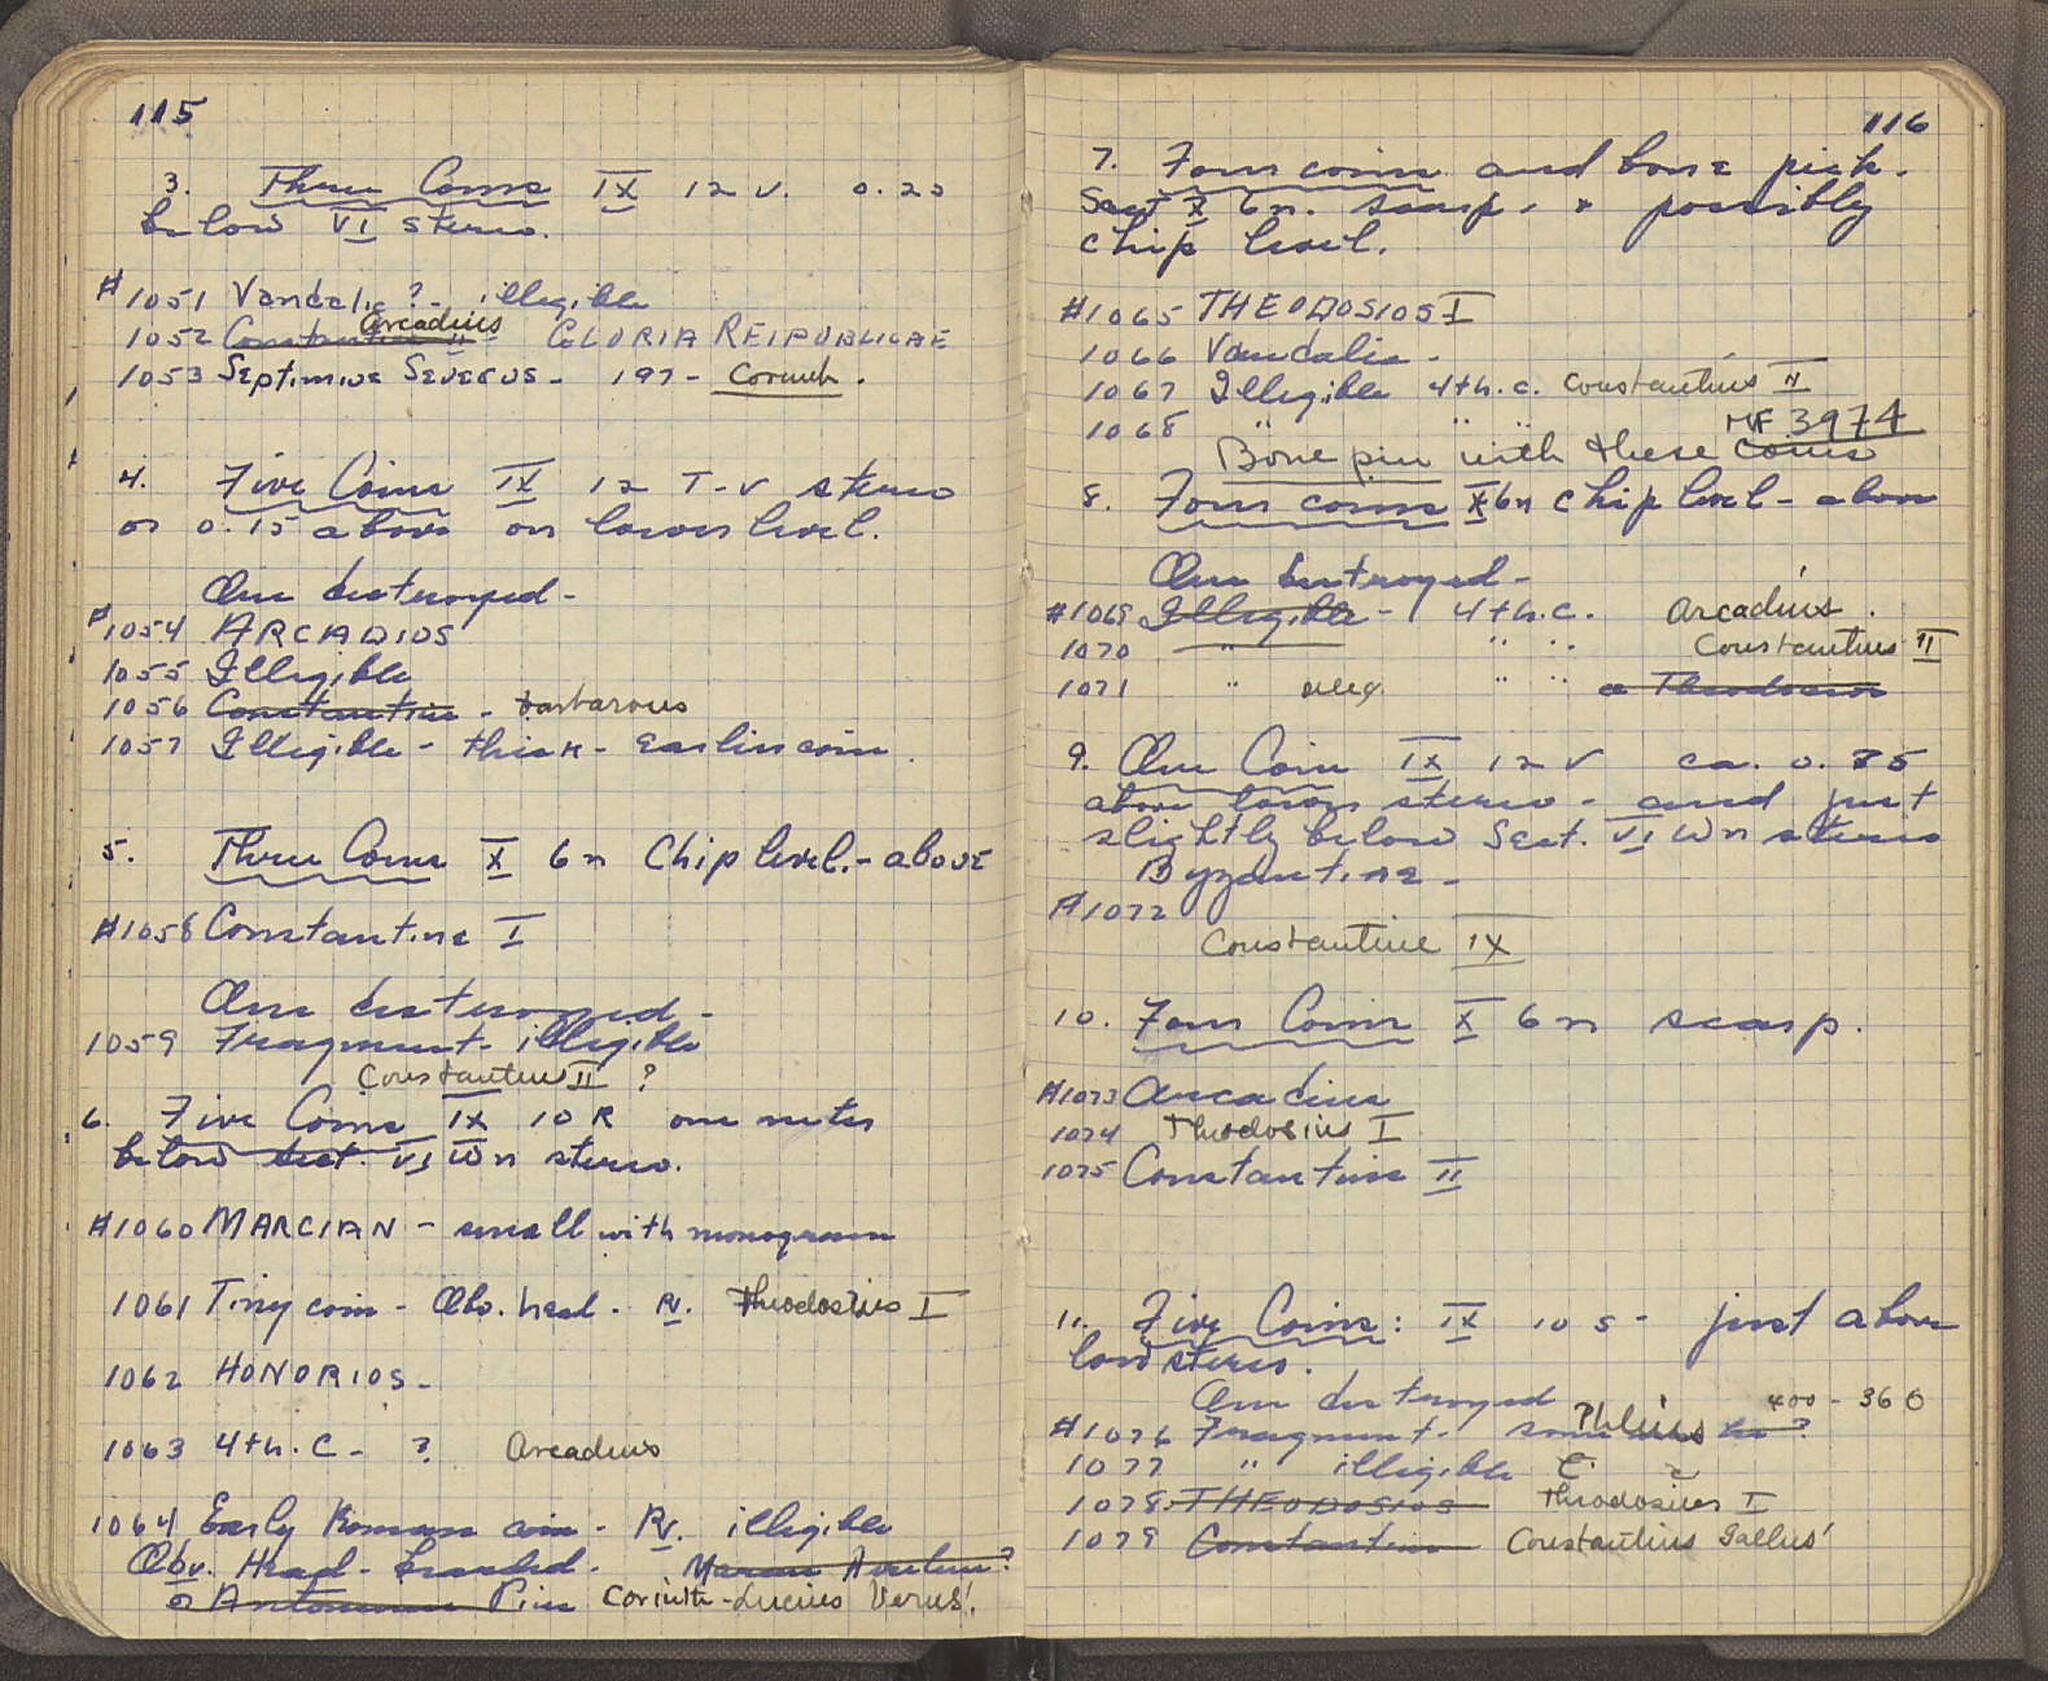 115
3. Three Coins IX 12 V. 0.20
below VI stereo.
#1051 Vandalic ? - illegible
Arcadius
1052 Constantine II GLORIA REIPUBLICAE
1053 Septimius Severus - 197 - Corinth.
4. Five Coins IX 12 T-V stereo
or 0.15 above on lower level.
One destroyed -
#1054 ARCADIOS
1055 Illegible
1056 Constantine - barbarous
1057 Illegible - thick - earlier coin.
5. Three Coins X 6n Chip level. - above
#1058 Constantine I
One destroyed -
1059 Fragment - illegible
Constantius II ?
6. Five Coins IX 10 R one meter
below Sect. VI Wn stereo.
#1060 MARCIAN - small with monogram
1061 Tiny coin - Obv. head - Rv. Theodosius I
1062 HONORIOS -
1063 4th. C - ? Arcadius
1064 Early Roman coin - Rv. illegible
Obv. Head - bearded. Marcus Aurelius?
or Antoninus Pius Corinth - Lucius Verus!
116
7. Four coins and bone pick.
Sect X 6n. scarp. + possibly
chip level.
#1065 THEODOSIOS I
1066 Vandalic -
1067 Illegible 4th. c. Constantius II
1068 " " "
MF 3974
Bone pin with these coins
8. Four coins X 6n chip level - above
One destroyed -
#1069 Illegible - 4th. c. Arcadius.
1070 " " " Constantius II
1071 " illeg. " " or Theodosius
9. One Coin IX 12 V ca. 0.75
above lower stereo - and just
slightly below Sect. VI Wn stereo
Byzantine -
#1072
Constantine IX
10. Four Coins X 6n scarp.
#1073 Arcadius
1074 Theodosius I
1075 Constantine II
11. Five Coins: IX 10 S - just above
low stereo.
One destroyed 400 - 360
#1076 Fragment - Phlius ?
1077 " illegible
1078 THEODOSIOS Theodosius I
1079 Constantine Constantius Gallus